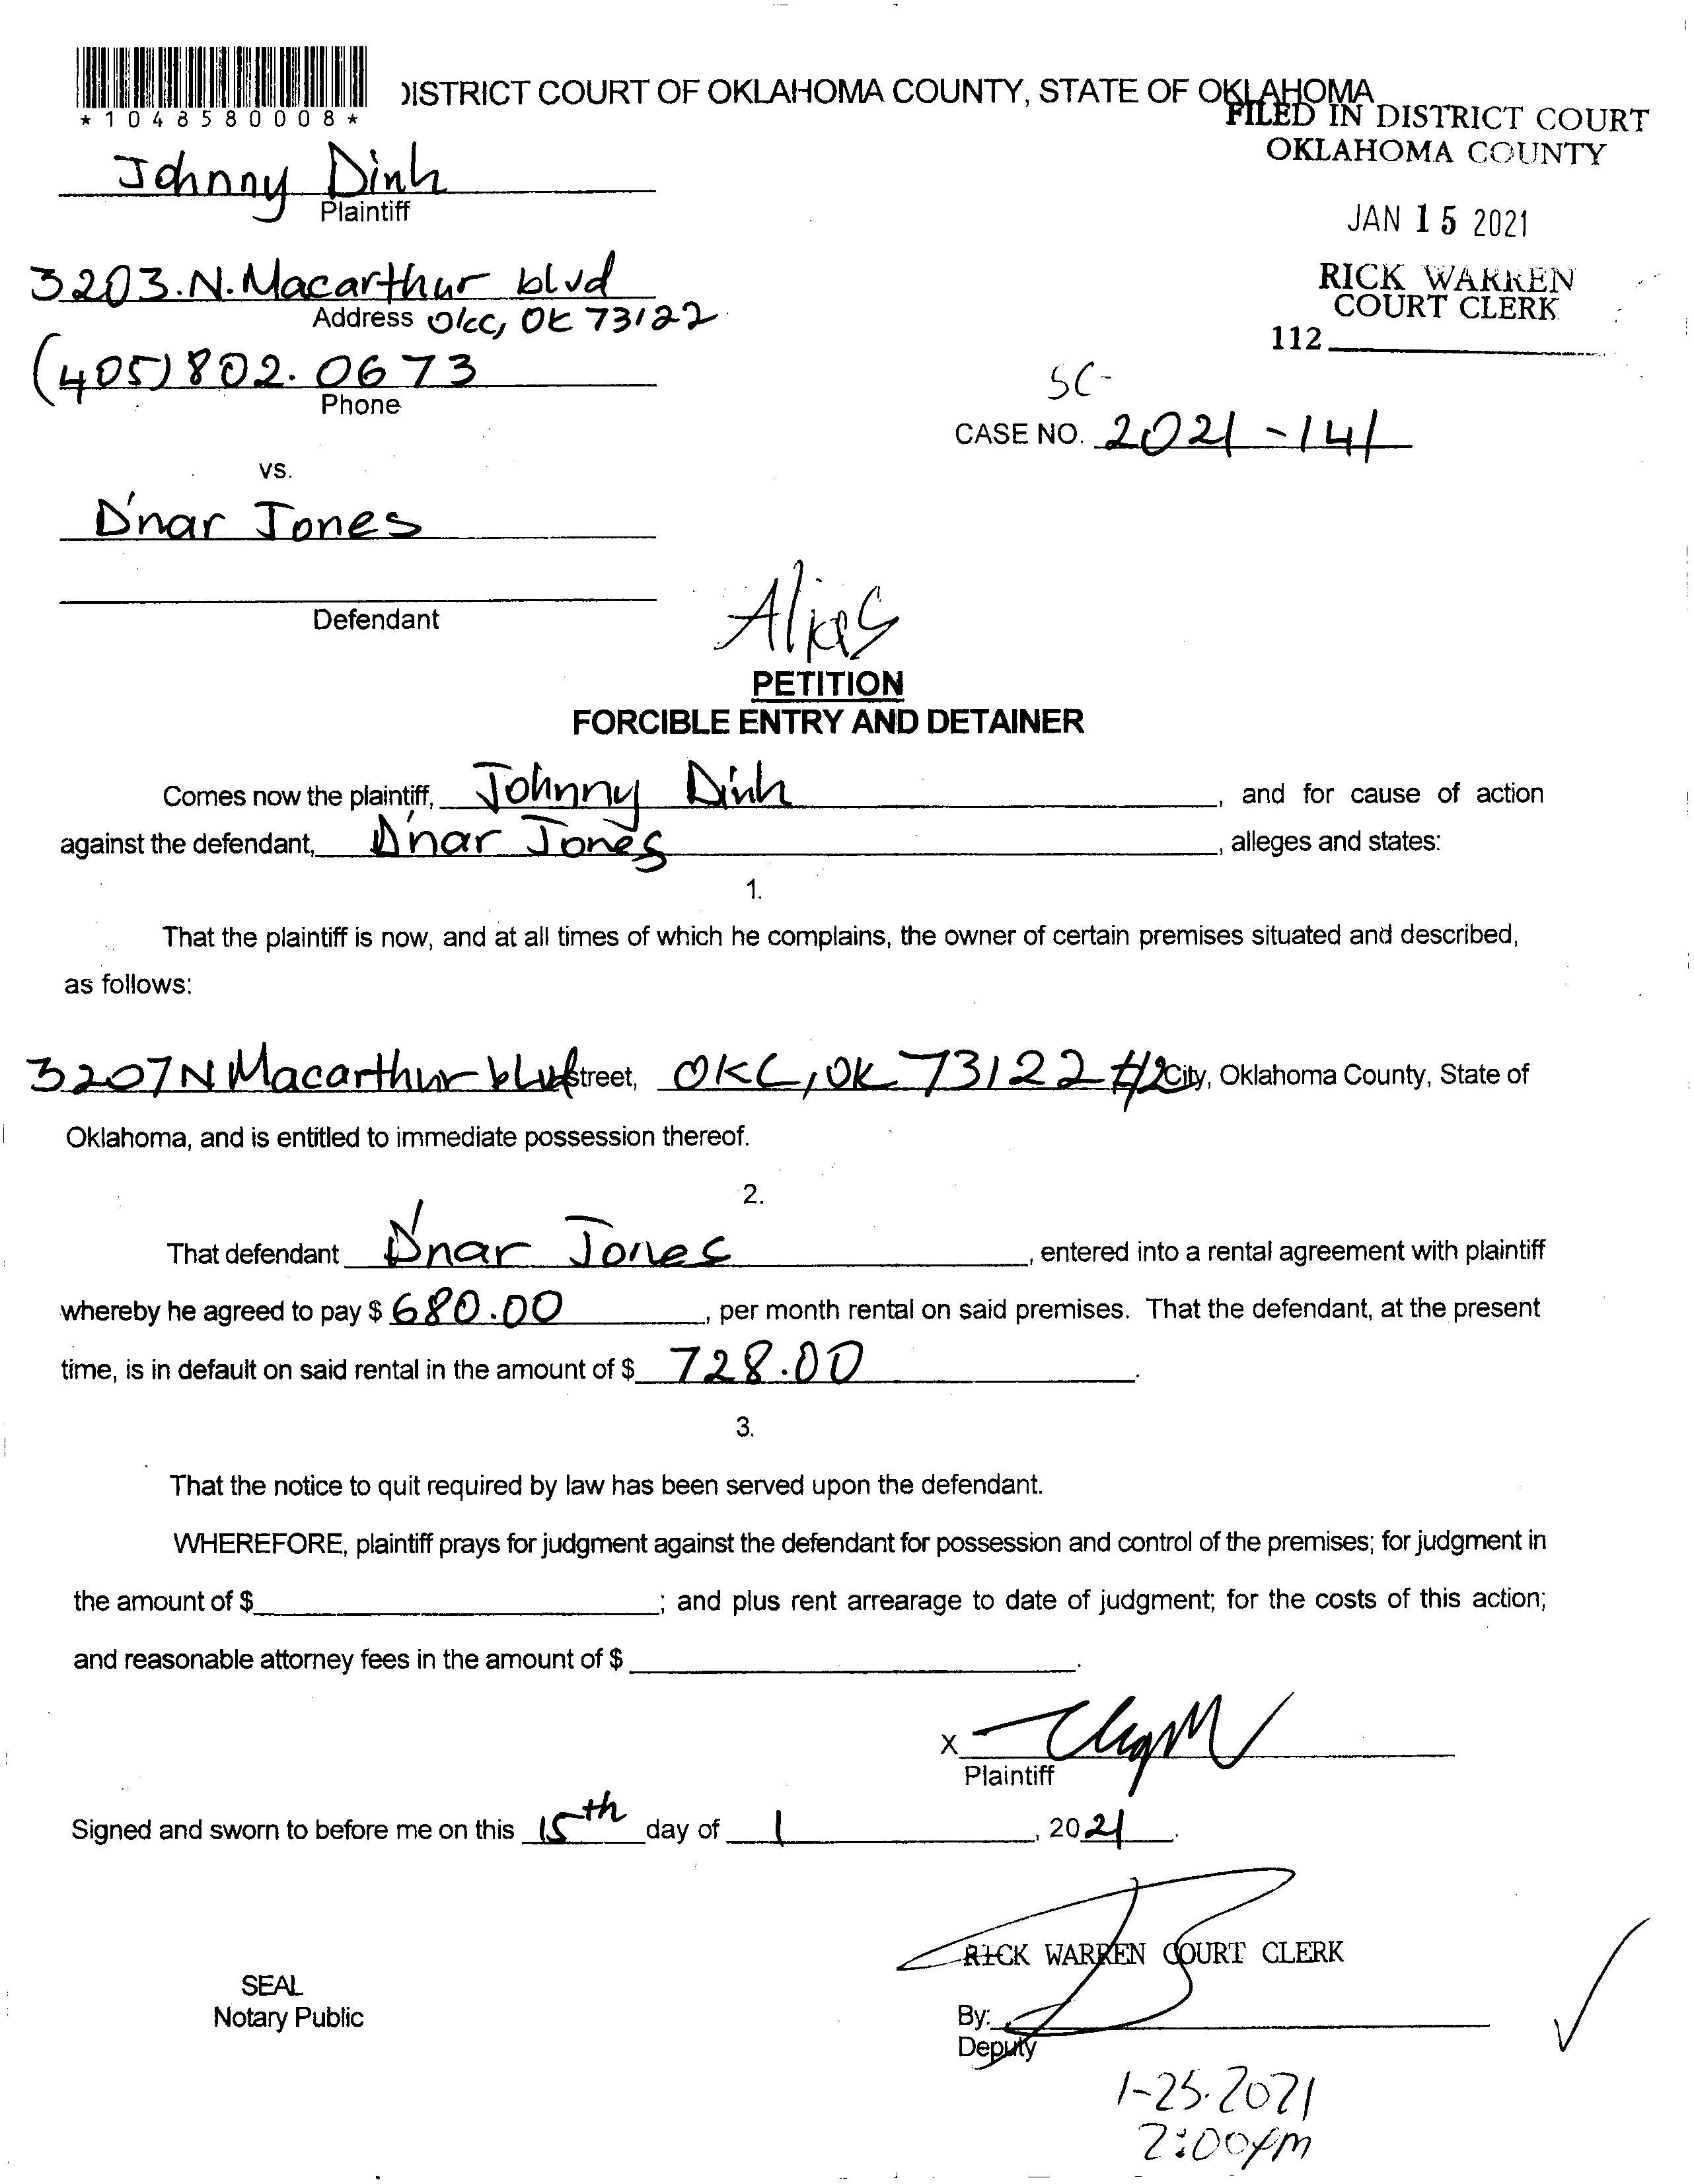 *1048580008*
DISTRICT COURT OF OKLAHOMA COUNTY, STATE OF OKLAHOMA
FILED IN DISTRICT COURT
OKLAHOMA COUNTY
Johnny Dinh
Plaintiff
JAN 15 2021
3203.N.Macarthur blvd
Address Okc, OK 73122
RICK WARREN
COURT CLERK
112
(405)802.0673
Phone
SC-
CASE NO. 2021-141
VS.
D'nar Jones
Defendant
Alias
PETITION
FORCIBLE ENTRY AND DETAINER
Comes now the plaintiff, Johnny Dinh, and for cause of action
against the defendant, D'nar Jones, alleges and states:
1.
That the plaintiff is now, and at all times of which he complains, the owner of certain premises situated and described,
as follows:
3207 N Macarthur blvd street, OKC, OK 73122 #2 City, Oklahoma County, State of
Oklahoma, and is entitled to immediate possession thereof.
2.
That defendant D'nar Jones, entered into a rental agreement with plaintiff
whereby he agreed to pay $ 680.00, per month rental on said premises. That the defendant, at the present
time, is in default on said rental in the amount of $ 728.00.
3.
That the notice to quit required by law has been served upon the defendant.
WHEREFORE, plaintiff prays for judgment against the defendant for possession and control of the premises; for judgment in
the amount of $; and plus rent arrearage to date of judgment; for the costs of this action;
and reasonable attorney fees in the amount of $.
X
Plaintiff
Signed and sworn to before me on this 15th day of 1, 2021.
RICK WARREN COURT CLERK
SEAL
Notary Public
By:
Deputy
1-25-2021
2:00pm